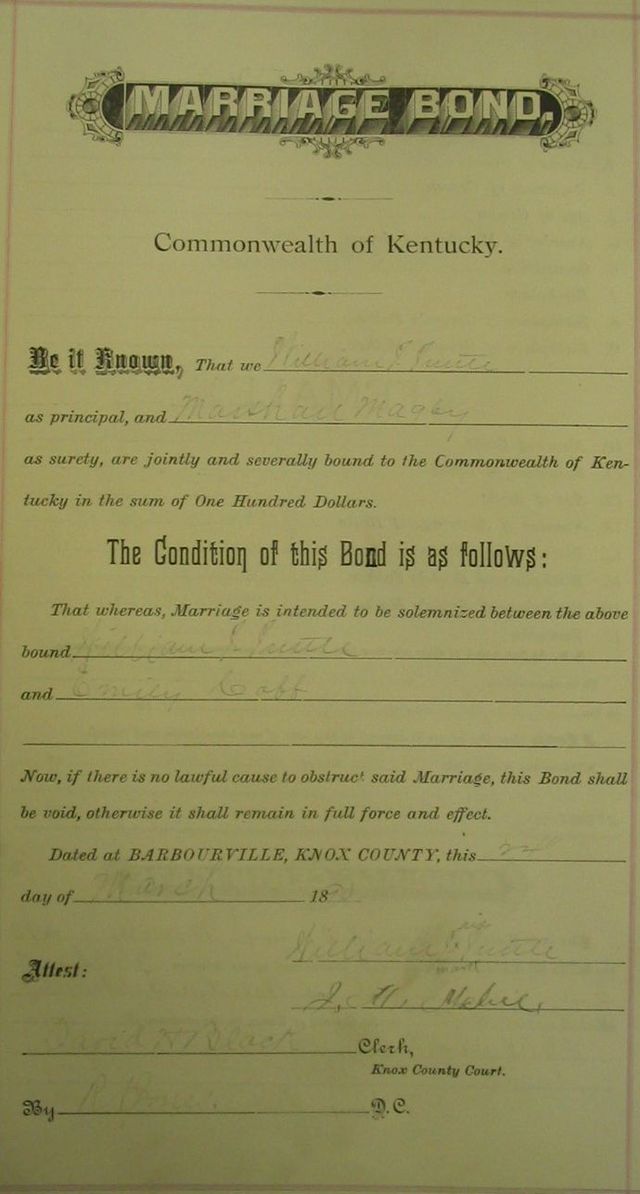 MARRIAGE BOND,
Commonwealth of Kentucky.
Be it Known, That we William J Tuttle
as principal, and Marshall Magby
as surety, are jointly and severally bound to the Commonwealth of Ken-
tucky in the sum of One Hundred Dollars.
The Condition of this Bond is as follows:
That whereas, Marriage is intended to be solemnized between the above
bound William J Tuttle
and Emily Cobb
Now, if there is no lawful cause to obstruct said Marriage, this Bond shall
be void, otherwise it shall remain in full force and effect.
Dated at BARBOURVILLE, KNOX COUNTY, this
day of March 18
William Tuttle
mark
Attest:
J. H.
David H Black Clerk,
Knox County Court.
By D.C.